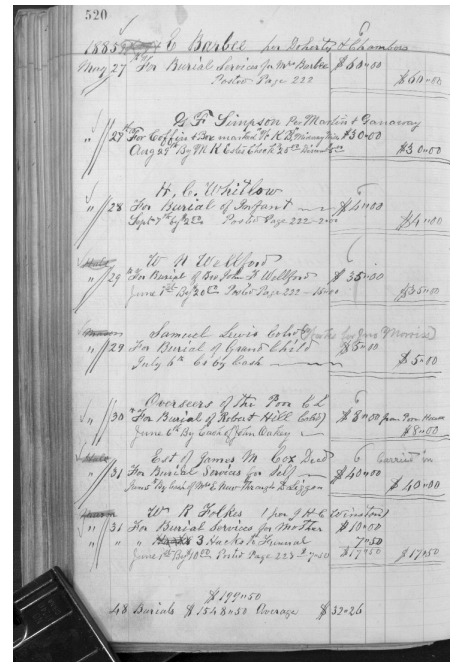 520
1885 E Barbee per Doherty & Chambers
May 27th For Burial Services for Mrs Barbee $60"00
Posted Page 222 $60"00
F Simpson Per Martin & Danaway
" 27th For Coffin & Box marked $30"00
Aug 29th By M K Estes Check 25 00 $30"00
H. C. Whitlow
" 28 For Burial of Infant $4"00
Sept 7th by Posted Page 222 $4"00
W N Wellford
" 29 For Burial of John Wellford $35"00
June 1st By 20 00 Posted Page 222 - 15 00 $35"00
Samuel Lewis Cold
" 29 For Burial of Grand Child $5"00
July 6th Cr by Cash $5"00
Overseers of the Poor
" 30 For Burial of Robert Hill $8"00 from Poor House
June 6th By Cash of Oakey $8"00
Est of James M. Cox Dead Carried for
" 31 For Burial Services for Self $40"00
By Cash of Mrs E New Through Liggon $40"00
W R Folkes (per J H C Winston)
" 31 For Burial Services for Mother $10"00
" " 3 Hacks to Funeral 7"50
June 1st By $10 00 Posted Page 223 $ 7"50 $17"50 $17"50
$199"50
48 Burials $1548"50 Average $32"26